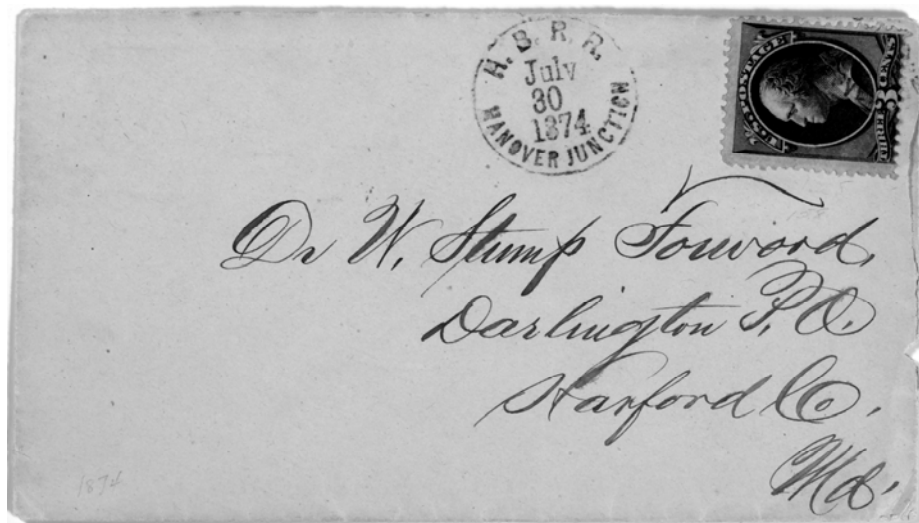 H. B. R. R.
July
30
1874
HANOVER JUNCTION
U.S. POSTAGE
THREE 3 CENTS
Dr W. Stump Forwood,
Darlington P. O.
Harford Co,
Md.
1874